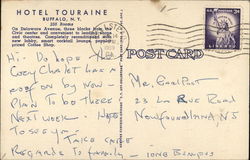 HOTEL TOURAINE
BUFFALO, N. Y.
350 Rooms
On Delaware Avenue, three blocks from the
Civic center and convenient to leading shops
and theatres. Completely reconditioned with
new lobby, smart cocktail lounge, popular
priced Coffee Shop.
POST CARD
Hi- Do hope the
Cozy Chalet has a
roof on by now -
Plan to be there
next week. Hope
To see you -
Take care
Regards To family -
Mr.
23 La Rue Road
Newfoundland NJ